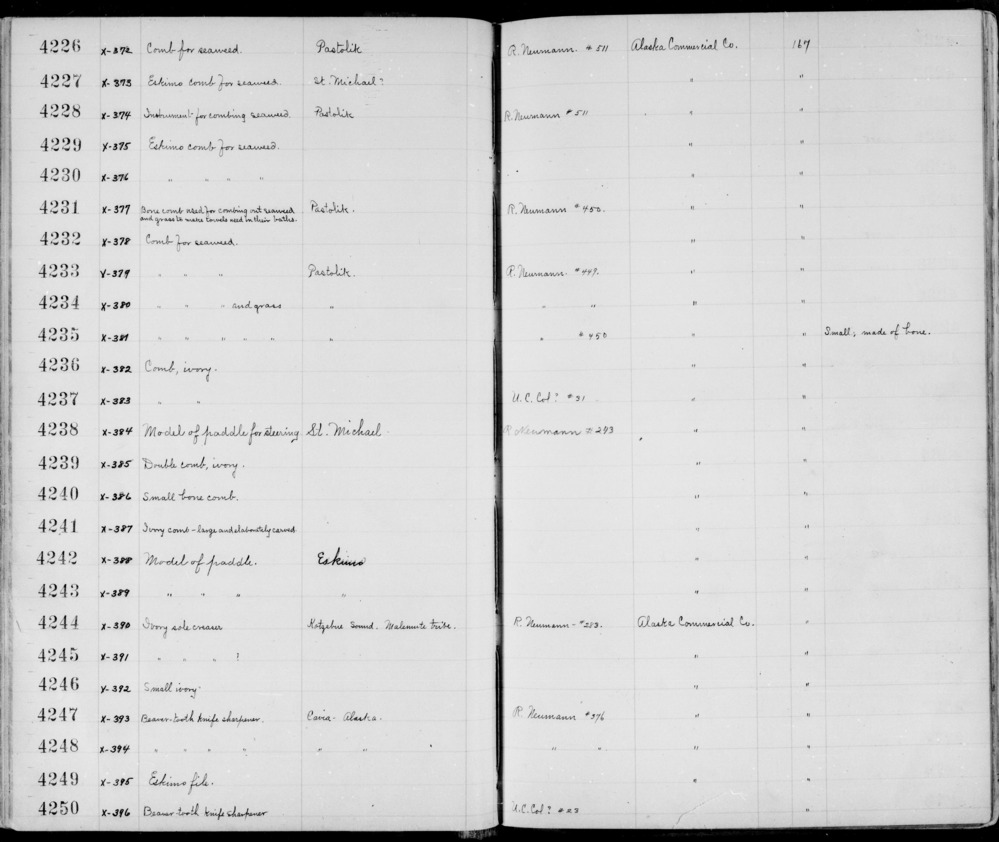 4226 X-372 Comb for seaweed. Pastolik R. Neumann # 511 Alaska Commercial Co. 167
4227 X-373 Eskimo comb for seaweed. St. Michael? " "
4228 X-374 Instrument for combing seaweed. Pastolik R. Neumann # 511 " "
4229 X-375 Eskimo comb for seaweed. " "
4230 X-376 " " " " " "
4231 X-377 Bone comb used for combing out seaweed Pastolik. R. Neumann # 450. " "
and grass to make towels used in their baths.
4232 X-378 Comb for seaweed. " "
4233 X-379 " " " Pastolik. R. Neumann # 449. " "
4234 X-380 " " " and grass " " " " "
4235 X-381 " " " " " " " # 450 " " Small, made of bone.
4236 X-382 Comb, ivory. " "
4237 X-383 " " U.C. Col? # 31 " "
4238 X-384 Model of paddle for steering St. Michael R Neumann # 243 " "
4239 X-385 Double comb, ivory. " "
4240 X-386 Small bone comb. " "
4241 X-387 Ivory comb - large and elaborately carved " "
4242 X-388 Model of paddle. Eskimo " "
4243 X-389 " " " " " "
4244 X-390 Ivory sole creaser Kotzebue Sound. Malemute tribe. R. Neumann - # 283. Alaska Commercial Co. "
4245 X-391 " " " ? " "
4246 X-392 Small ivory " "
4247 X-393 Beaver-tooth knife sharpener. Alaska. R. Neumann # 376 " "
4248 X-394 " " " " " " " " " "
4249 X-395 Eskimo file. " "
4250 X-396 Beaver tooth knife sharpener U.C. Col? # 23 "